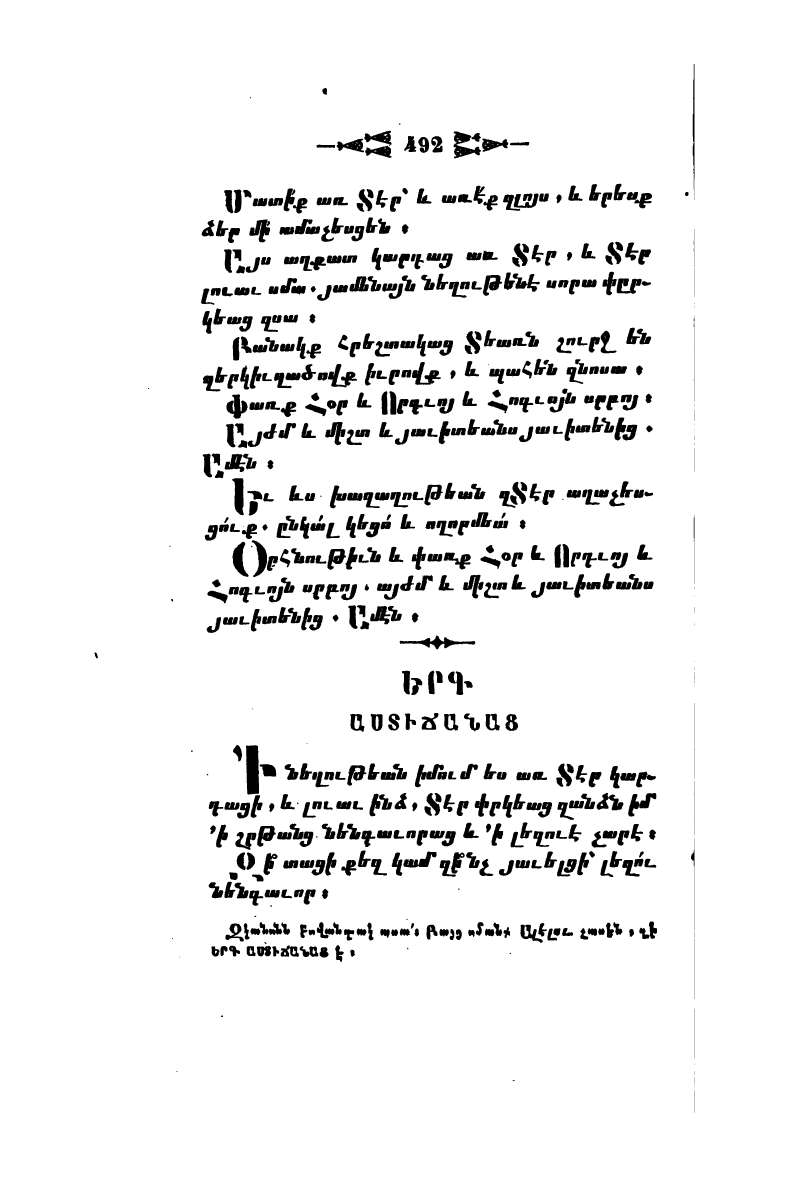 492
Մատի՛ք առ Տէր՝ և առէ՛ք զլոյս, և երեսք
ձեր մի ամաչեսցեն։
Այս աղքատ կարդաց առ Տէր, և Տէր
լուաւ սմա. յամենայն նեղութենէ սորա փըր-
կեաց զսա։
Բանակք Հրեշտակաց Տեառն շուրջ են
զերկիւղածովք իւրովք, և պահեն զնոսա։
Փառք Հօր և Որդւոյ և Հոգւոյն սրբոյ։
Այժմ և միշտ և յաւիտեանս յաւիտենից.
Ամէն։
Եւ ևս խաղաղութեան զՏէր աղաչես-
ցուք. ընկալ կեցո՛ և ողորմեա՛։
Օրհնութիւն և փառք Հօր և Որդւոյ և
Հոգւոյն սրբոյ. այժմ և միշտ և յաւիտեանս
յաւիտենից. Ամէն։
ԵՐԳ
ԱՍՏԻՃԱՆԱՑ
Ի նեղութեան իմում ես առ Տէր կար-
դացի, և լուաւ ինձ, Տէր փրկեաց զանձն իմ
՚ի շրթանց նենգաւորաց և ՚ի լեզուէ չարէ։
Զի՞ տացի քեզ կամ զի՞նչ յաւելցի՝ լեզու
նենգաւոր։
Չիանսն բովանդակ ասա՛։ Բայց ոմանք Ալէլու չասեն, զի
ԵՐԳ ԱՍՏԻՃԱՆԱՑ է։